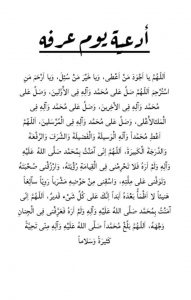 أدعية يوم عرفة
اللَّهُمَّ يَا أَجْوَدَ مَنْ أَعْطَى، وَيَا خَيْرَ مَنْ سُئِلَ، وَيَا أَرْحَمَ مَنِ
اسْتُرْحِمَ اللَّهُمَّ صَلِّ عَلَى مُحَمَّدٍ وَآلِهِ فِي الْأَوَّلِينَ، وَصَلِّ عَلَى
مُحَمَّدٍ وَآلِهِ فِي الْآخِرِينَ، وَصَلِّ عَلَى مُحَمَّدٍ وَآلِهِ فِي
الْمَلَإِ الْأَعْلَى، وَصَلِّ عَلَى مُحَمَّدٍ وَآلِهِ فِي الْمُرْسَلِينَ، اللَّهُمَّ
أَعْطِ مُحَمَّداً وَآلَهُ الْوَسِيلَةَ وَالْفَضِيلَةَ وَالشَّرَفَ وَالرِّفْعَةَ
وَالدَّرَجَةَ الْكَبِيرَةَ، اللَّهُمَّ إِنِّي آمَنْتُ بِمُحَمَّدٍ صَلَّى اللهُ عَلَيْهِ وَآلِهِ
وَلَمْ أَرَهُ فَلَا تَحْرِمْنِي فِي الْقِيَامَةِ رُؤْيَتَهُ، وَارْزُقْنِي صُحْبَتَهُ
وَتَوَفَّنِي عَلَى مِلَّتِهِ، وَاسْقِنِي مِنْ حَوْضِهِ مَشْرَباً رَوِيّاً سَائِغاً
هَنِيئاً لَا أَظْمَأُ بَعْدَهُ أَبَداً إِنَّكَ عَلَى كُلِّ شَيْءٍ قَدِيرٌ، اللَّهُمَّ إِنِّي
آمَنْتُ بِمُحَمَّدٍ صَلَّى اللهُ عَلَيْهِ وَآلِهِ وَلَمْ أَرَهُ فَعَرِّفْنِي فِي الْجِنَانِ
وَجْهَهُ، اللَّهُمَّ بَلِّغْ مُحَمَّداً صَلَّى اللهُ عَلَيْهِ وَآلِهِ مِنِّي تَحِيَّةً
كَثِيرَةً وَسَلَاماً